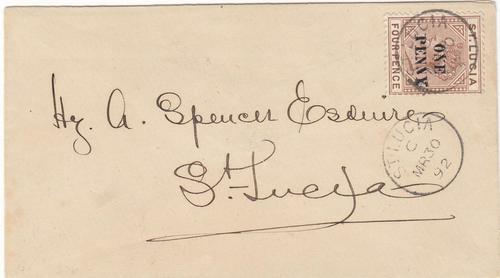 ST. LUCIA
FOUR PENCE
ONE
PENNY
Hy. A. Spencer Esquire
St. Lucia
ST. LUCIA
C
MR 30
92